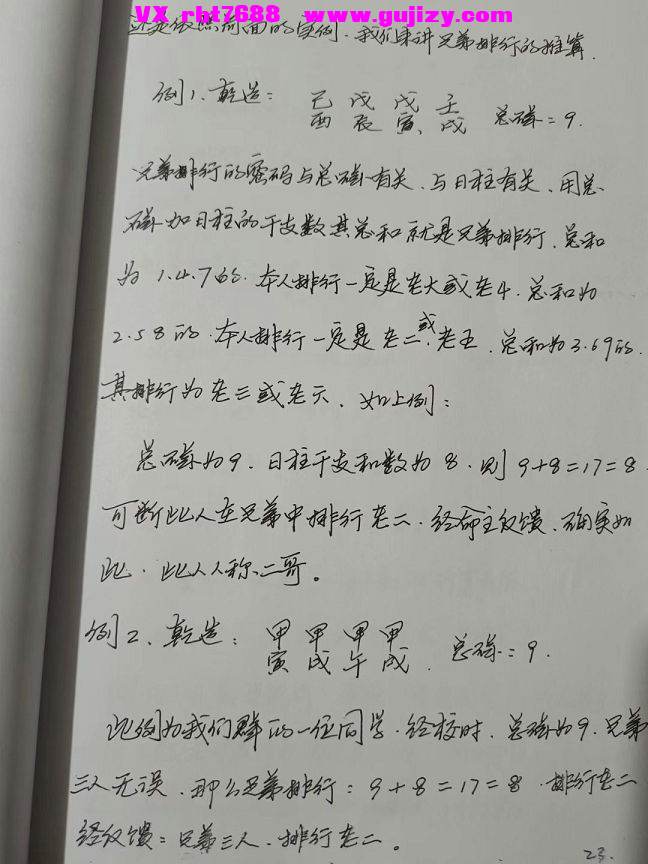 VX rht7688 www.gujizy.com
还是依照前面的实例,我们来讲兄弟排行的推算.
例1、乾造: 己 戊 戊 壬
酉 辰 寅 戌 总础=9.
兄弟排行的密码与总础有关、与日柱有关、用总
础加日柱的干支数其总和就是兄弟排行、总和
为1.4.7的.本人排行一定是老大或老4.总和为
2.5.8的.本人排行一定是老二或老五、总和为3.6.9的.
其排行为老三或老六、如上例:
总础为9.日柱干支和数为8.则9+8=17=8.
可断此人在兄弟中排行老二.经命主反馈、确实如
此.此人人称二哥。
例2、乾造: 甲 甲 甲 甲
寅 戌 午 戌. 总础:9.
此例为我们群的一位同学.经校时.总础为9.兄弟
三人无误.那么兄弟排行:9+8=17=8.排行老二
经反馈:兄弟三人.排行老二。
23.